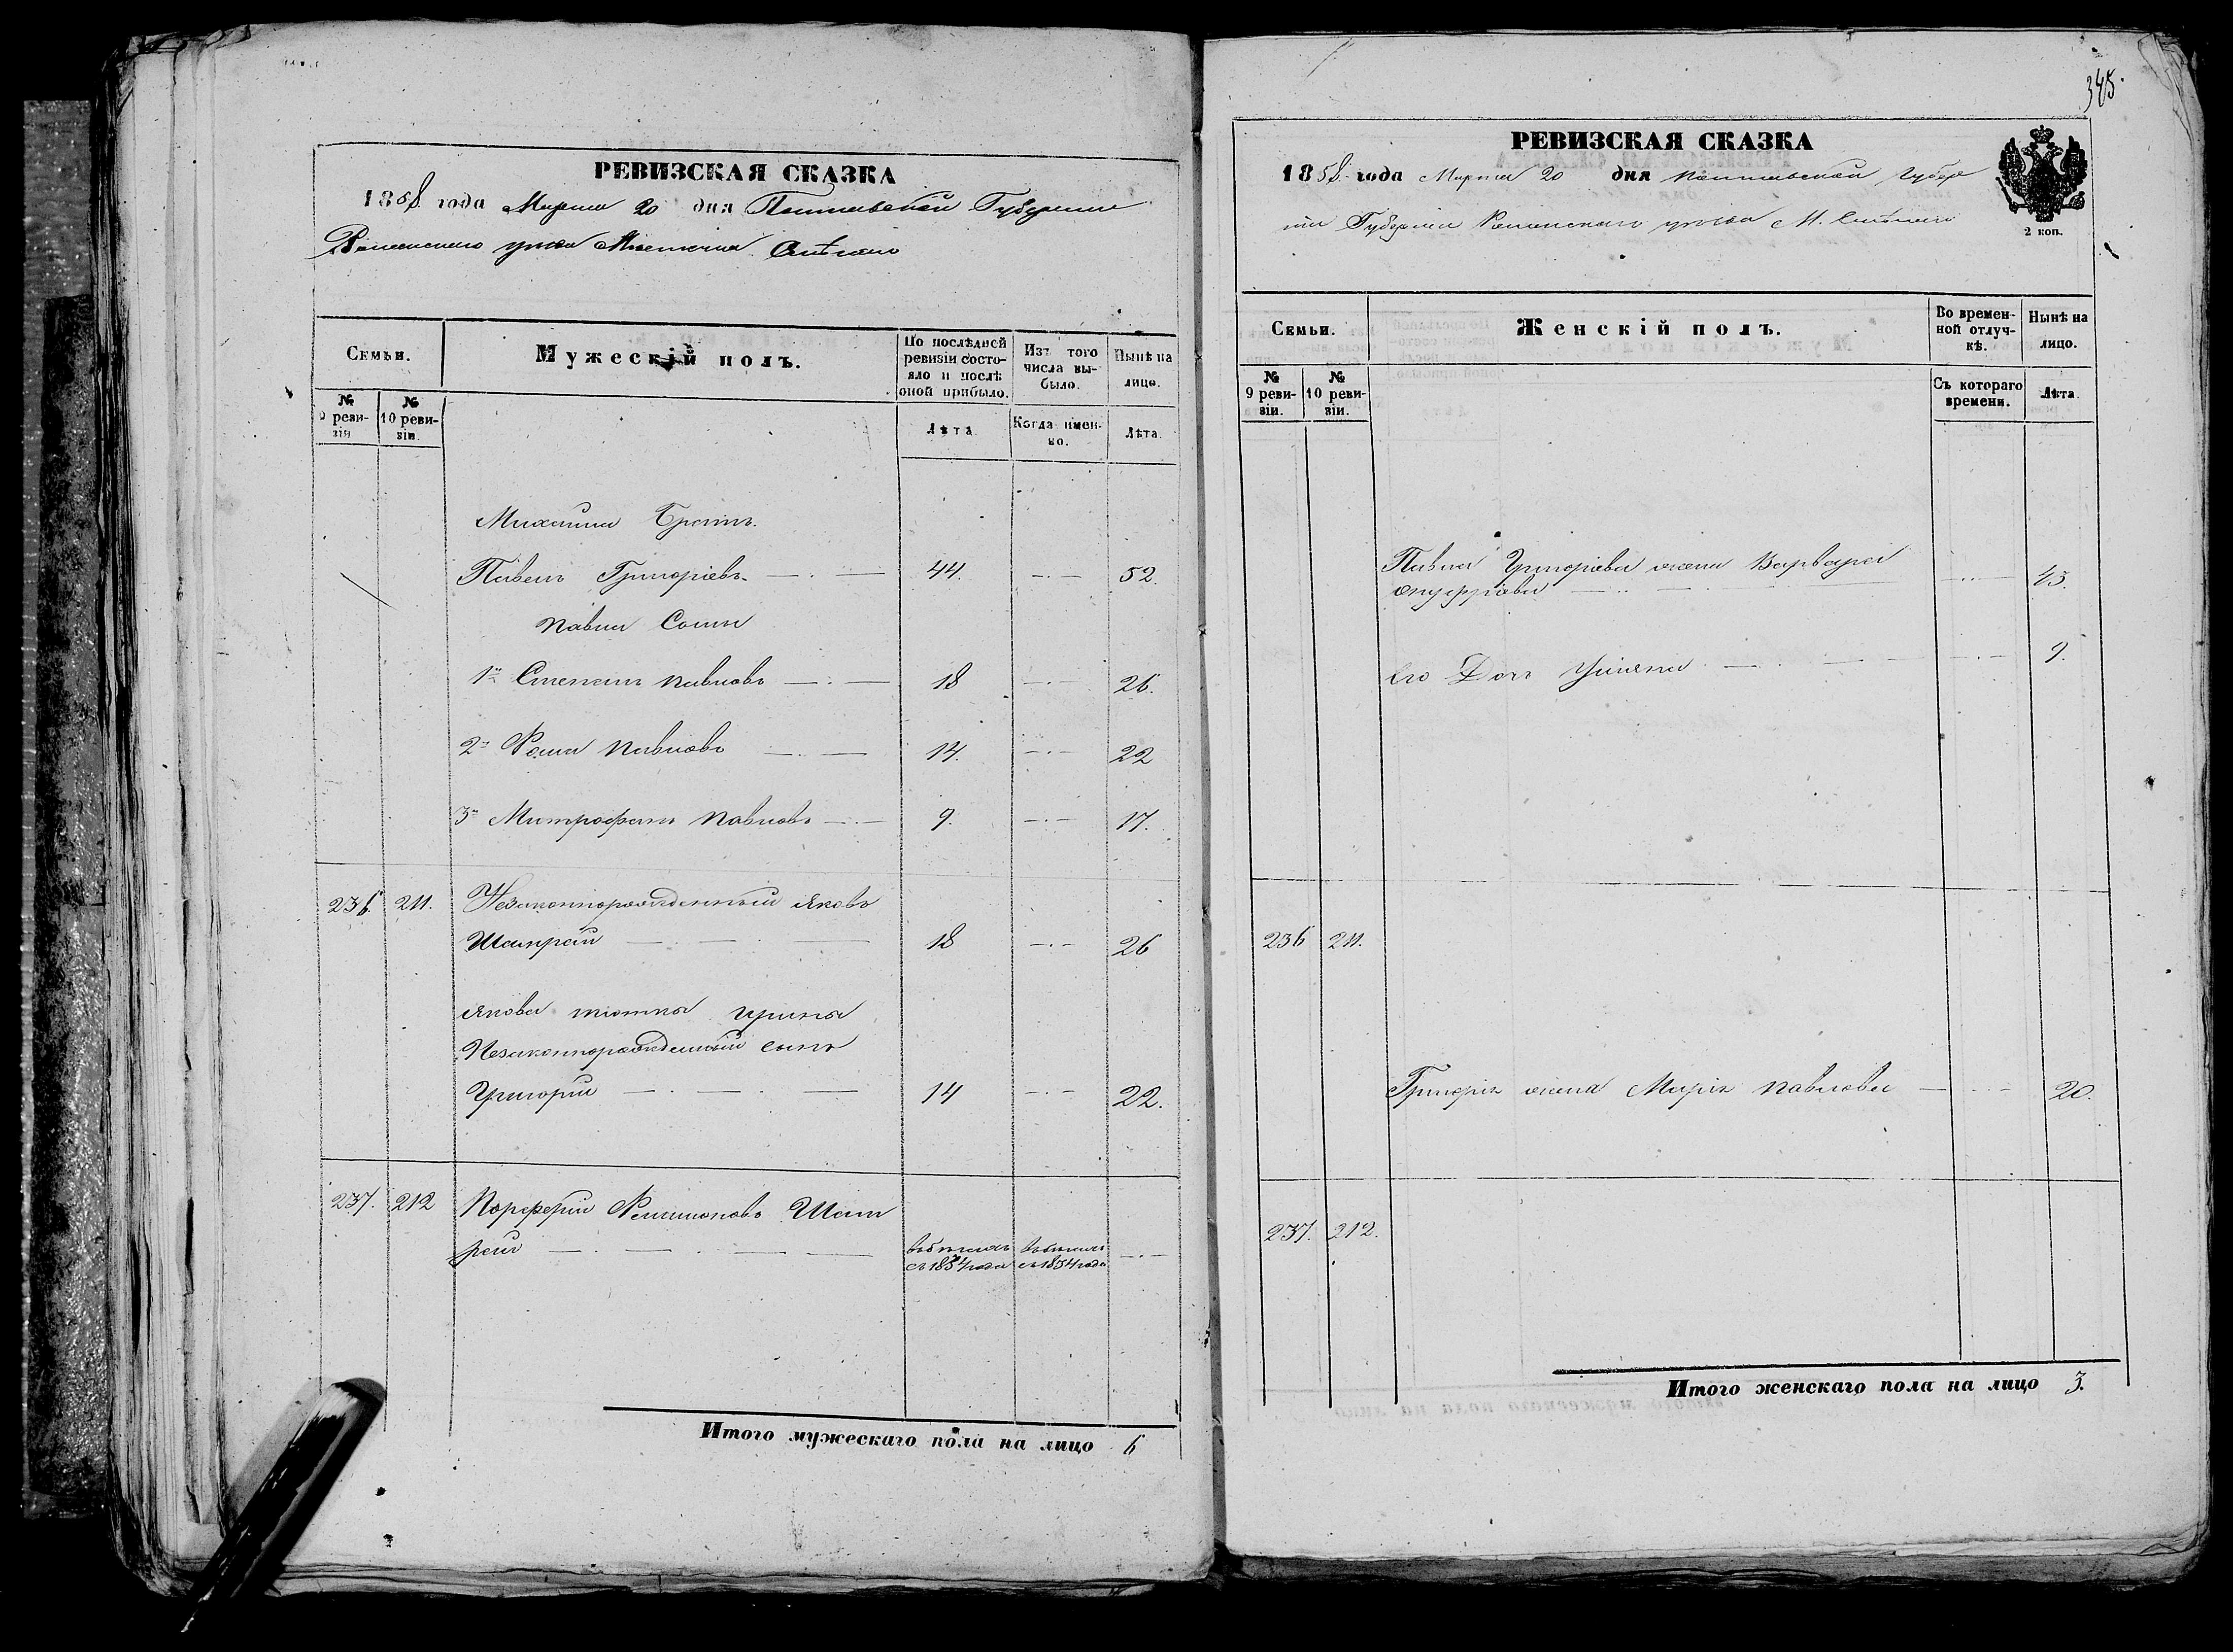 РЕВИЗСКАЯ СКАЗКА
1858 года Марта 20 дня Полтавской Губернии
Роменского уѣзда Местечка Смѣлаго
Семьи.
Мужескій полъ.
По послѣдней ревизіи состояло и послѣ оной прибыло.
Изъ того числа выбыло.
Нынѣ на лицо.
№ 9 ревизіи
№ 10 ревизіи.
Лѣта
Когда именно.
Лѣта.
Михаила Братъ
Павелъ Григоріевъ 44. 52.
Павла Сыны
1й Степанъ Павловъ 18 26.
2й Рома Павловъ 14. 22
3й Митрофанъ Павловъ 9. 17.
236. 211. Незаконнорожденный Яковъ
Шапрай 18 26
Якова тютки Ирины
Незаконнорожденный сынъ
Григорій 14 22.
237. 212 Порферій Шап
рай
съ 1854 года съ 1854 года
Итого мужескаго пола на лицо 6
345.
РЕВИЗСКАЯ СКАЗКА
1858 года Марта 20 дня Полтавской Губер
нии Губерніи Роменскаго уѣзда М. Смѣлаго
2 коп.
Семьи.
Женскій полъ.
Во временной отлучкѣ.
Нынѣ на лицо.
№ 9 ревизіи.
№ 10 ревизіи.
Съ котораго времени.
Лѣта
Павла Григоріева жена Варвара
Онуфріева 43.
Его Дочь Ульяна 9.
236 211.
Григорія жена Марія Павлова 20.
237. 212.
Итого женскаго пола на лицо 3.